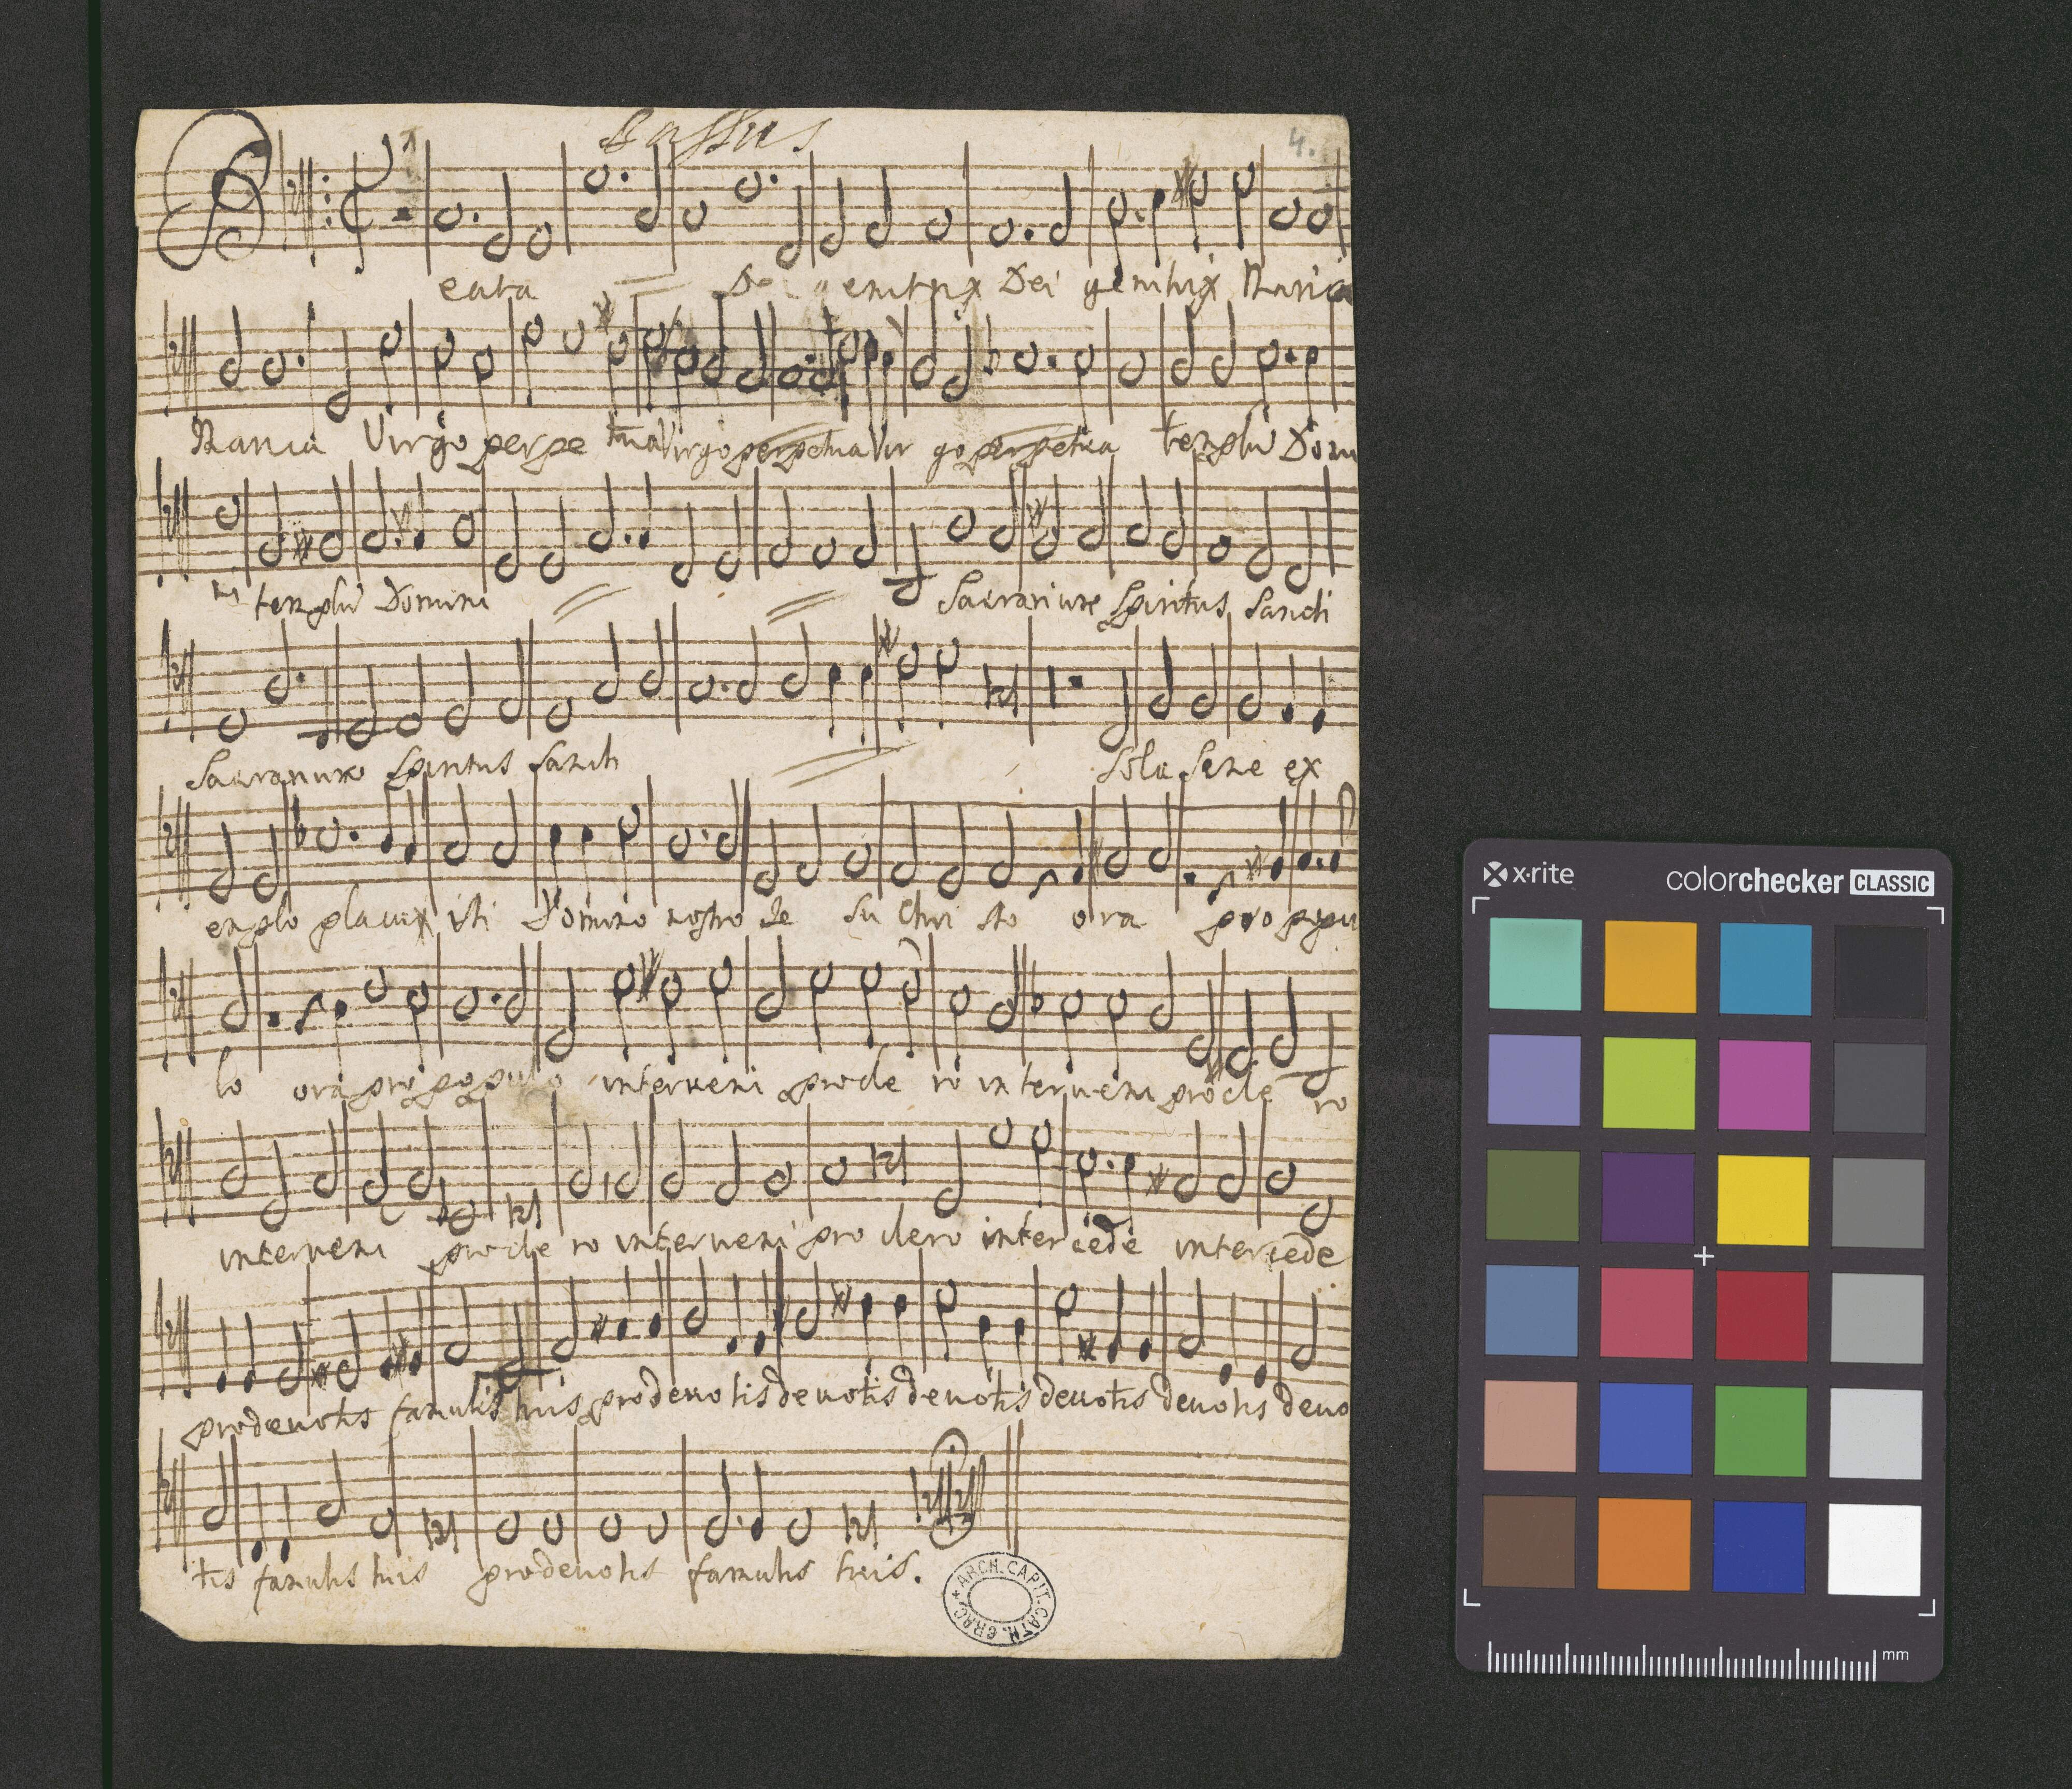 Bassus
4.
Beata Dei genitrix Dei genitrix Maria
Maria Virgo perpe tua Virgo perpetua Vir go perpetua templū Domi
ni templū Domini Sacrarium Spiritus Sancti
Sacrarium Spiritus Sancti Sola sine ex
emplo placuisti Domino nostro Je su Chri sto ora pro popu
lo ora pro populo interveni pro cle ro interveni pro cle ro
interveni pro cle ro interveni pro clero intercede intercede
pro devotis famulis tuis pro devotis devotis devotis devotis devotis devo
tis famulis tuis pro devotis famulis tuis.
ARCH. CAPIT. CATH. CRAC.
x-rite
colorchecker CLASSIC
mm